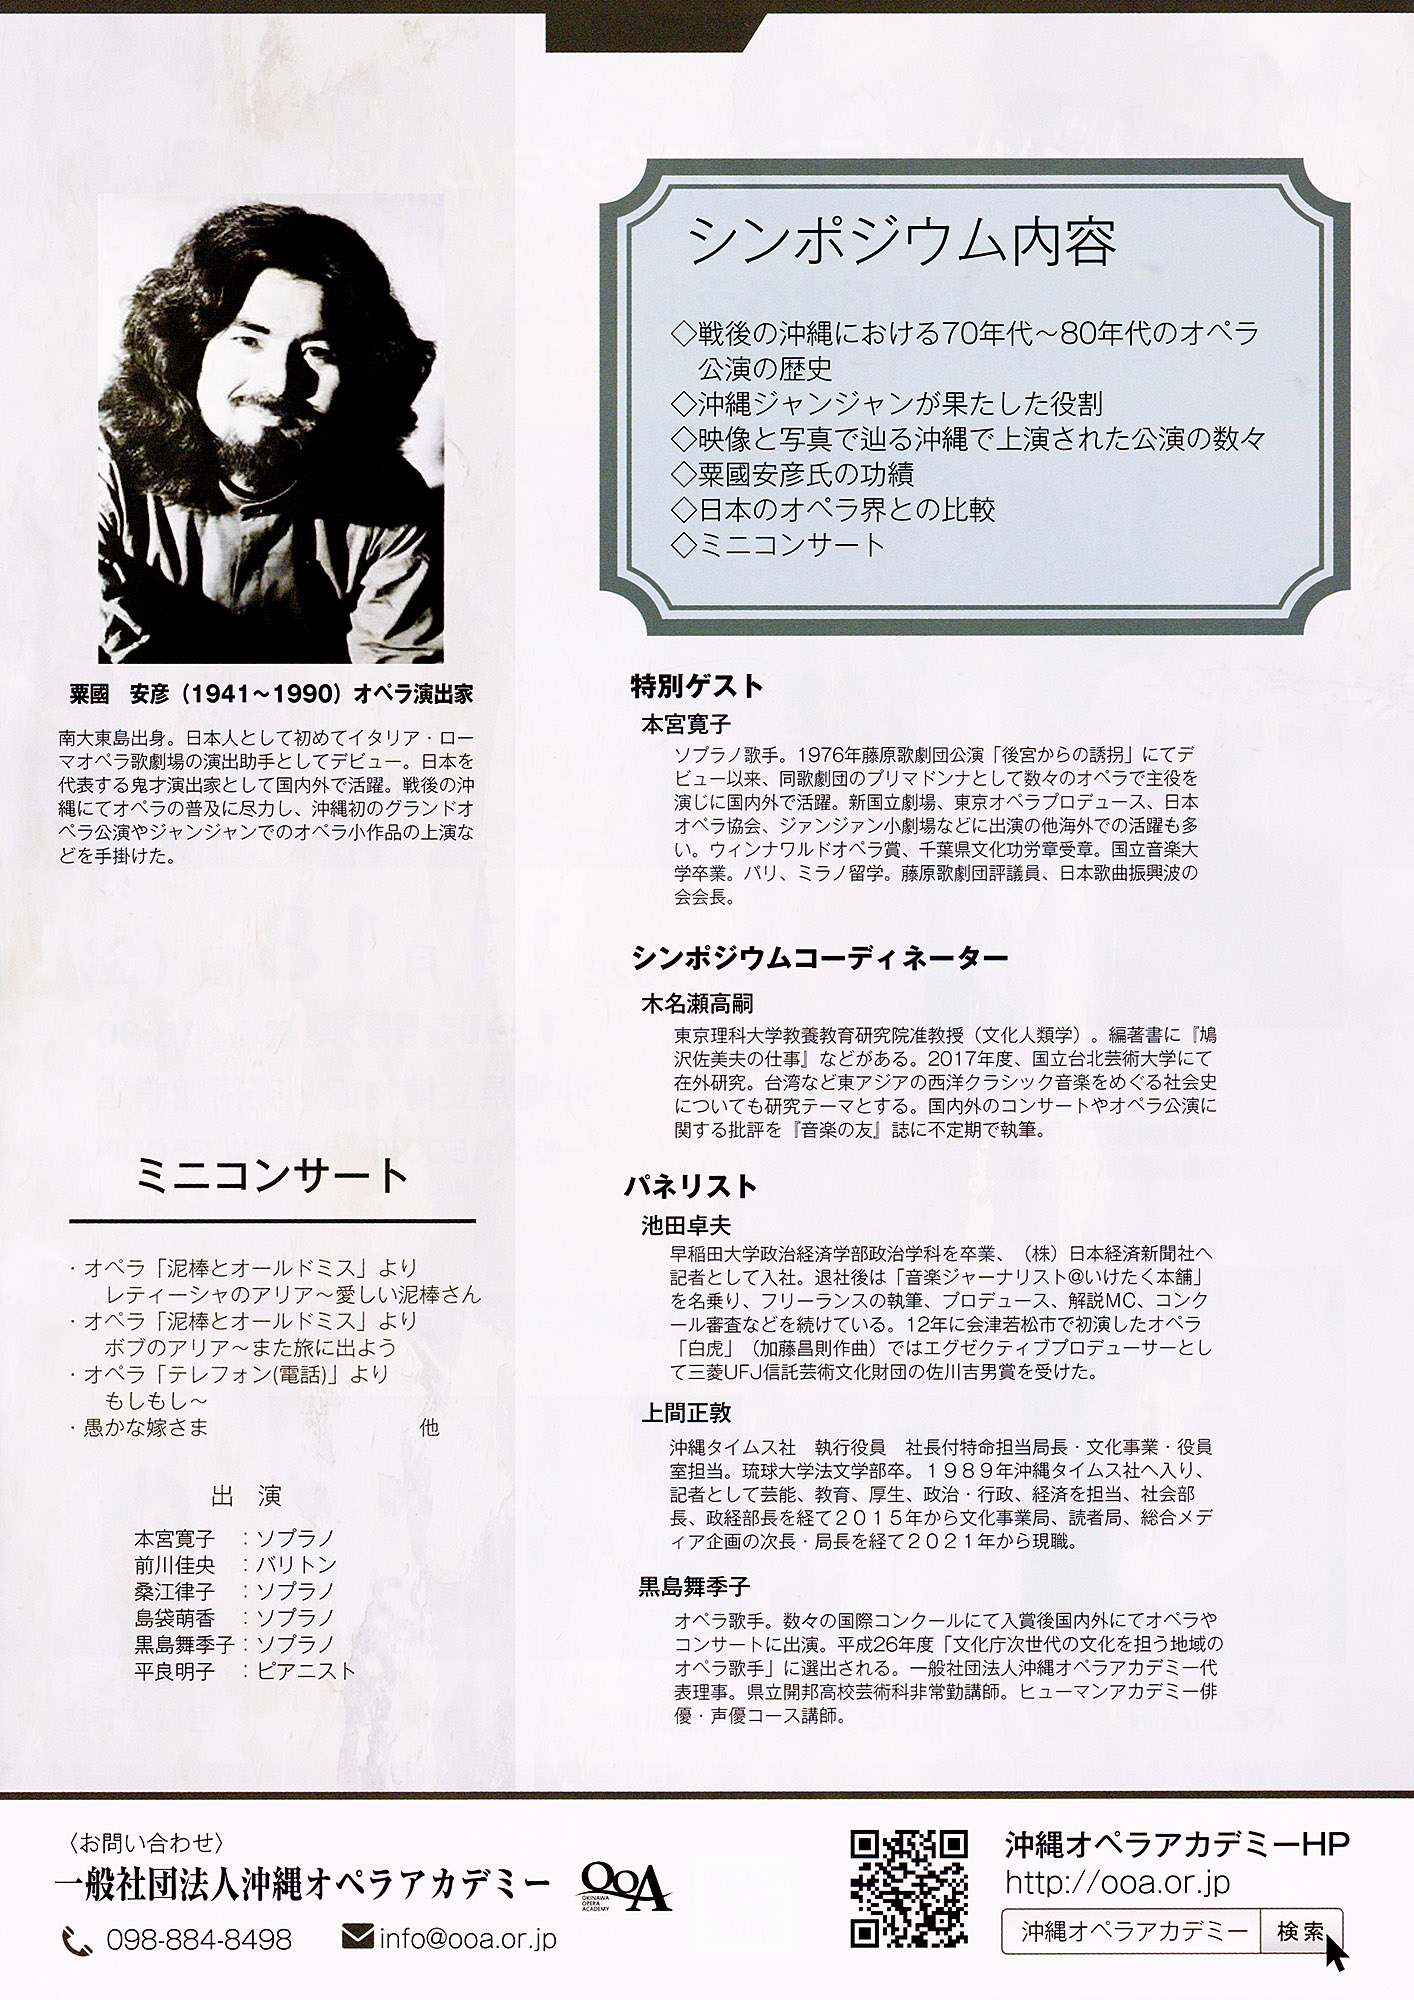 シンポジウム内容
◇戦後の沖縄における70年代～80年代のオペラ
公演の歴史
◇沖縄ジャンジャンが果たした役割
◇映像と写真で辿る沖縄で上演された公演の数々
◇粟國安彦氏の功績
◇日本のオペラ界との比較
◇ミニコンサート
粟國　安彦（1941～1990）オペラ演出家
南大東島出身。日本人として初めてイタリア・ロー
マオペラ歌劇場の演出助手としてデビュー。日本を
代表する鬼才演出家として国内外で活躍。戦後の沖
縄にてオペラの普及に尽力し、沖縄初のグランドオ
ペラ公演やジャンジャンでのオペラ小作品の上演な
どを手掛けた。
ミニコンサート
・オペラ「泥棒とオールドミス」より
レティーシャのアリア～愛しい泥棒さん
・オペラ「泥棒とオールドミス」より
ボブのアリア～また旅に出よう
・オペラ「テレフォン(電話)」より
もしもし～
・愚かな嫁さま　他
出　演
本宮寛子　：ソプラノ
前川佳央　：バリトン
桑江律子　：ソプラノ
島袋萌香　：ソプラノ
黒島舞季子：ソプラノ
平良明子　：ピアニスト
特別ゲスト
本宮寛子
ソプラノ歌手。1976年藤原歌劇団公演「後宮からの誘拐」にてデ
ビュー以来、同歌劇団のプリマドンナとして数々のオペラで主役を
演じに国内外で活躍。新国立劇場、東京オペラプロデュース、日本
オペラ協会、ジァンジァン小劇場などに出演の他海外での活躍も多
い。ウィンナワルドオペラ賞、千葉県文化功労章受章。国立音楽大
学卒業。パリ、ミラノ留学。藤原歌劇団評議員、日本歌曲振興波の
会会長。
シンポジウムコーディネーター
木名瀬高嗣
東京理科大学教養教育研究院准教授（文化人類学）。編著書に『鳩
沢佐美夫の仕事』などがある。2017年度、国立台北芸術大学にて
在外研究。台湾など東アジアの西洋クラシック音楽をめぐる社会史
についても研究テーマとする。国内外のコンサートやオペラ公演に
関する批評を『音楽の友』誌に不定期で執筆。
パネリスト
池田卓夫
早稲田大学政治経済学部政治学科を卒業、（株）日本経済新聞社へ
記者として入社。退社後は「音楽ジャーナリスト@いけたく本舗」
を名乗り、フリーランスの執筆、プロデュース、解説MC、コンク
ール審査などを続けている。12年に会津若松市で初演したオペラ
「白虎」（加藤昌則作曲）ではエグゼクティブプロデューサーとし
て三菱UFJ信託芸術文化財団の佐川吉男賞を受けた。
上間正敦
沖縄タイムス社　執行役員　社長付特命担当局長・文化事業・役員
室担当。琉球大学法文学部卒。１９８９年沖縄タイムス社へ入り、
記者として芸能、教育、厚生、政治・行政、経済を担当、社会部
長、政経部長を経て２０１５年から文化事業局、読者局、総合メデ
ィア企画の次長・局長を経て２０２１年から現職。
黒島舞季子
オペラ歌手。数々の国際コンクールにて入賞後国内外にてオペラや
コンサートに出演。平成26年度「文化庁次世代の文化を担う地域の
オペラ歌手」に選出される。一般社団法人沖縄オペラアカデミー代
表理事。県立開邦高校芸術科非常勤講師。ヒューマンアカデミー俳
優・声優コース講師。
〈お問い合わせ〉
一般社団法人沖縄オペラアカデミー
OOA
OKINAWA
OPERA
ACADEMY
098-884-8498
info@ooa.or.jp
沖縄オペラアカデミーHP
http://ooa.or.jp
沖縄オペラアカデミー　検索